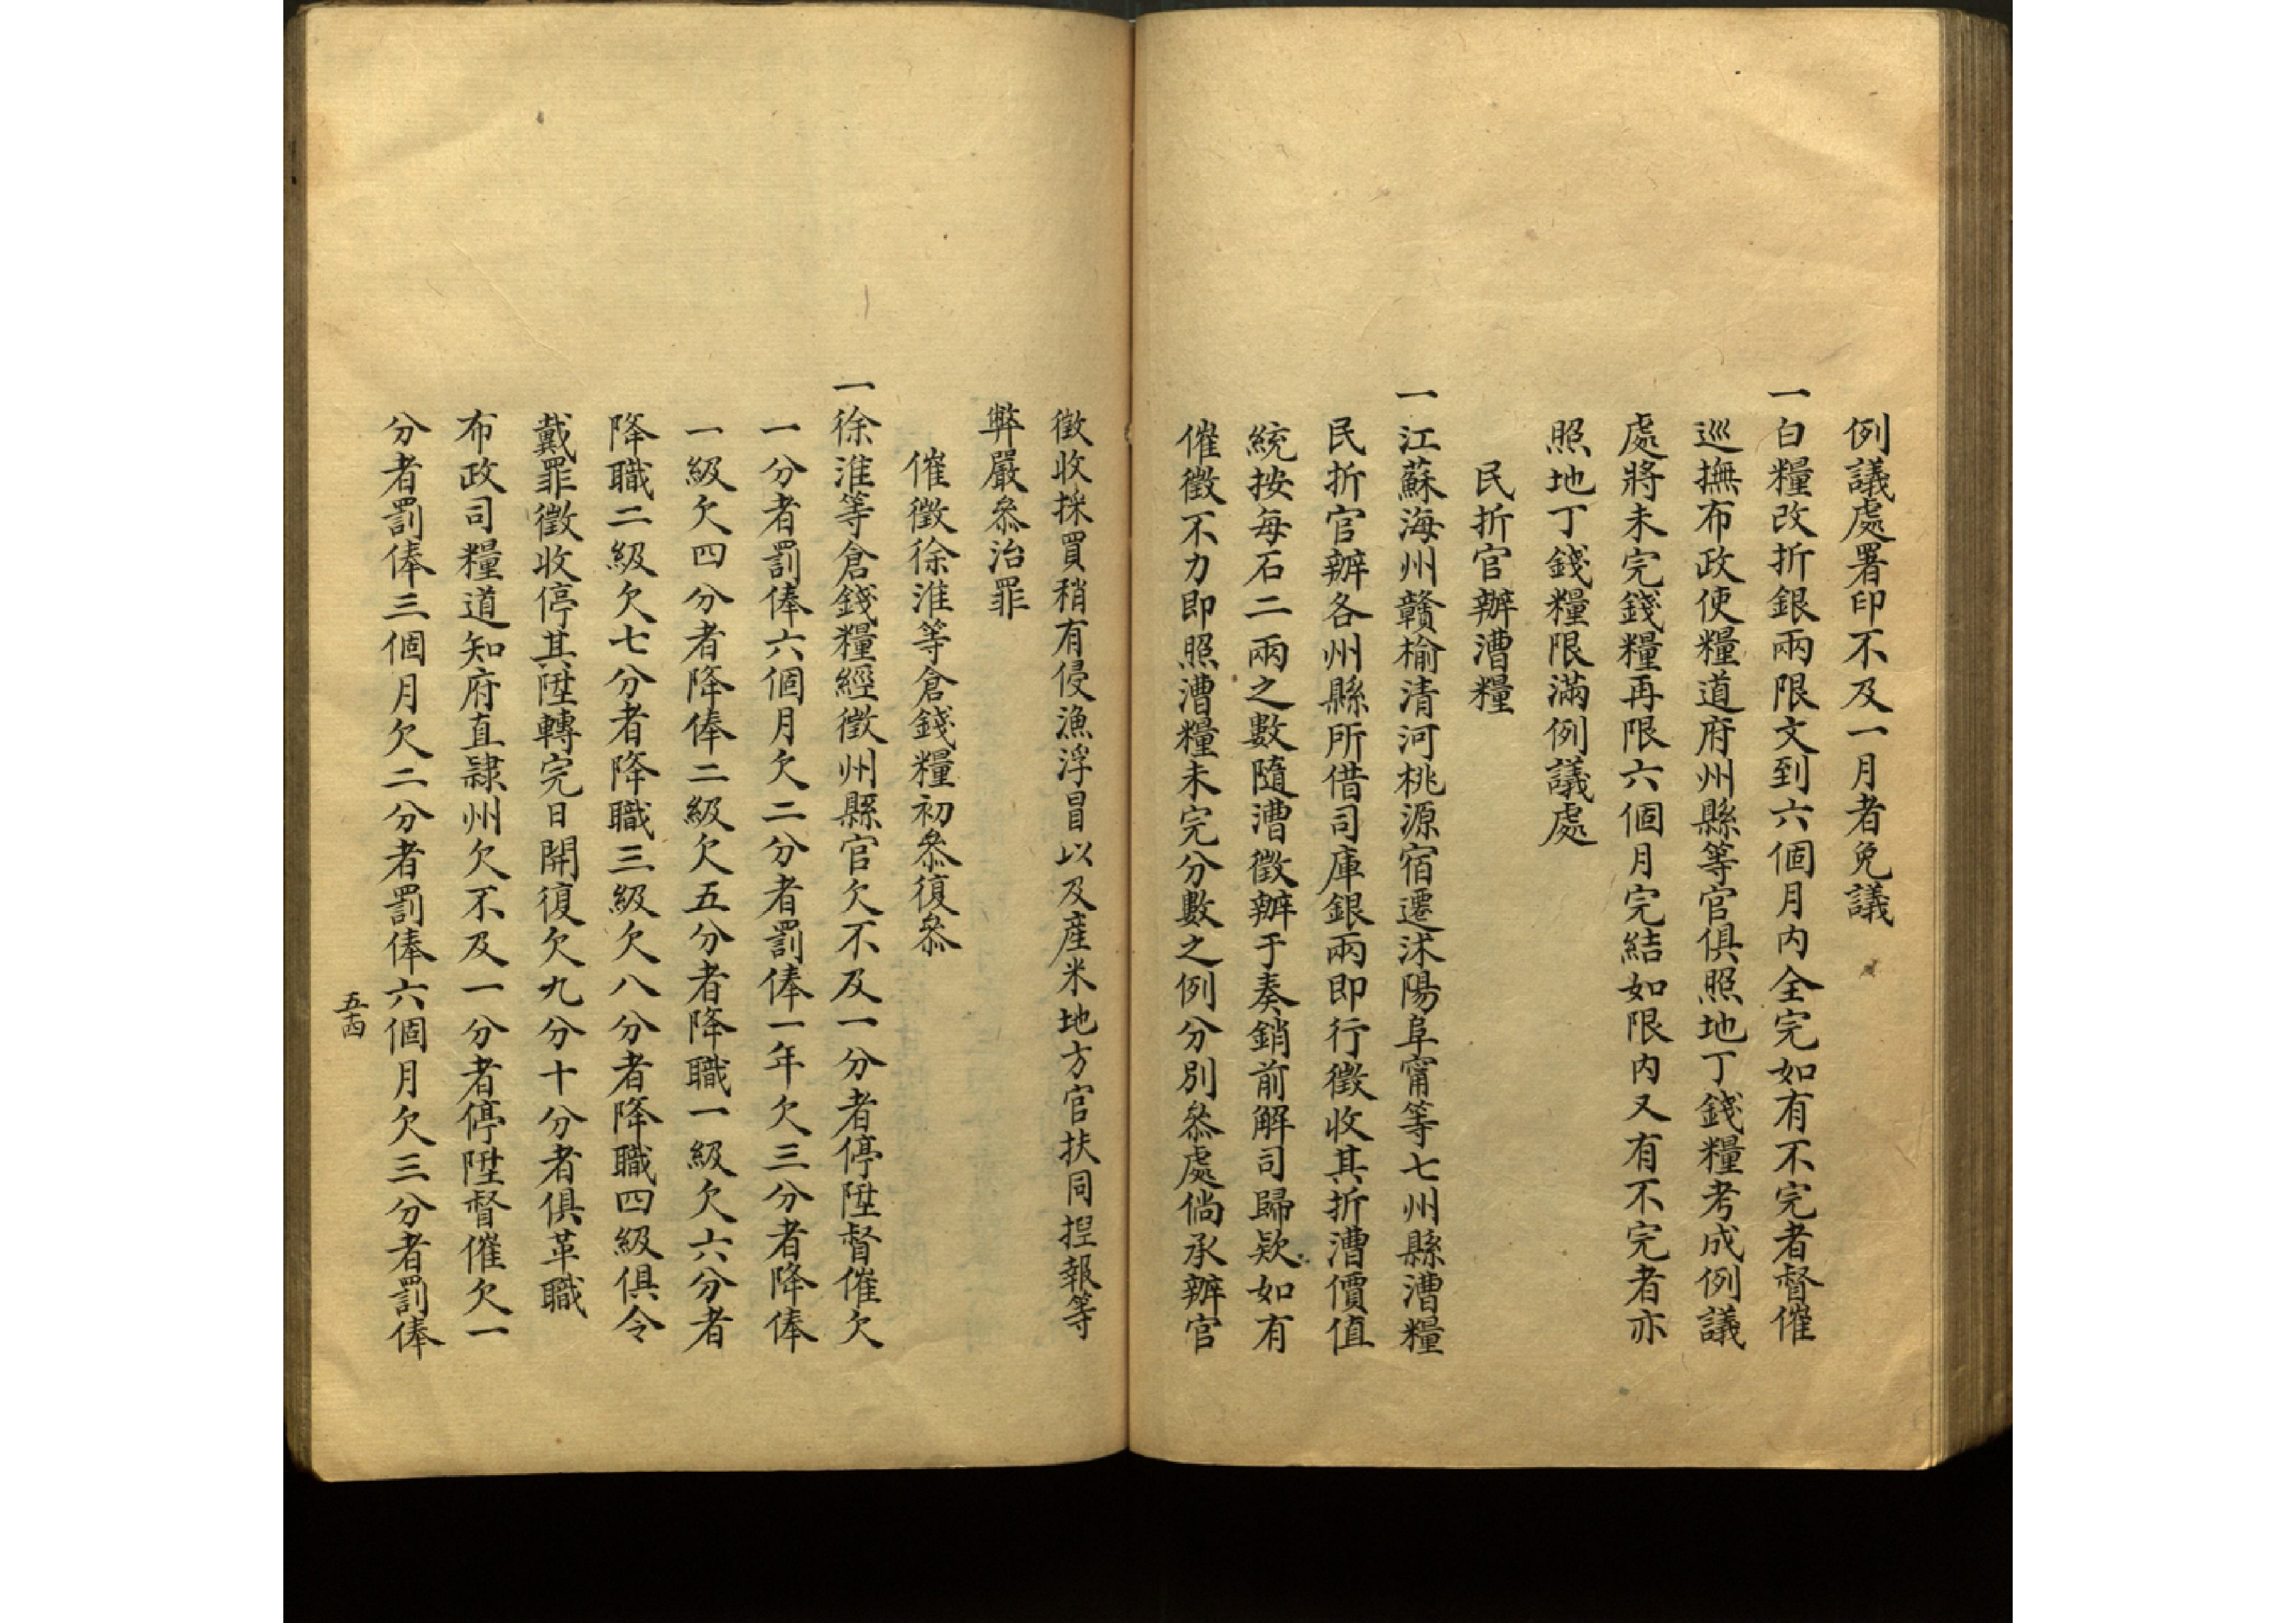 例議處署印不及一月者免議
一白糧改折銀兩限文到六個月内全完如有不完者督催
巡撫布政使糧道府州縣等官俱照地丁錢糧考成例議
處將未完錢糧再限六個月完結如限内又有不完者亦
照地丁錢糧限滿例議處
民折官辦漕糧
一江蘇海州贛榆清河桃源宿遷沭陽阜甯等七州縣漕糧
民折官辦各州縣所借司庫銀兩即行徵收其折漕價值
統按每石二兩之數隨漕徵辦于奏銷前解司歸欵如有
催徵不力即照漕糧未完分數之例分別叅處倘承辦官
徵收採買稍有侵漁浮冒以及產米地方官扶同揑報等
弊嚴叅治罪
催徵徐淮等倉錢糧初叅復叅
一徐淮等倉錢糧經徵州縣官欠不及一分者停陞督催欠
一分者罰俸六個月欠二分者罰俸一年欠三分者降俸
一級欠四分者降俸二級欠五分者降職一級欠六分者
降職二級欠七分者降職三級欠八分者降職四級俱令
戴罪徵收停其陞轉完日開復欠九分十分者俱革職
布政司糧道知府直隸州欠不及一分者停陞督催欠一
分者罰俸三個月欠二分者罰俸六個月欠三分者罰俸
五十四